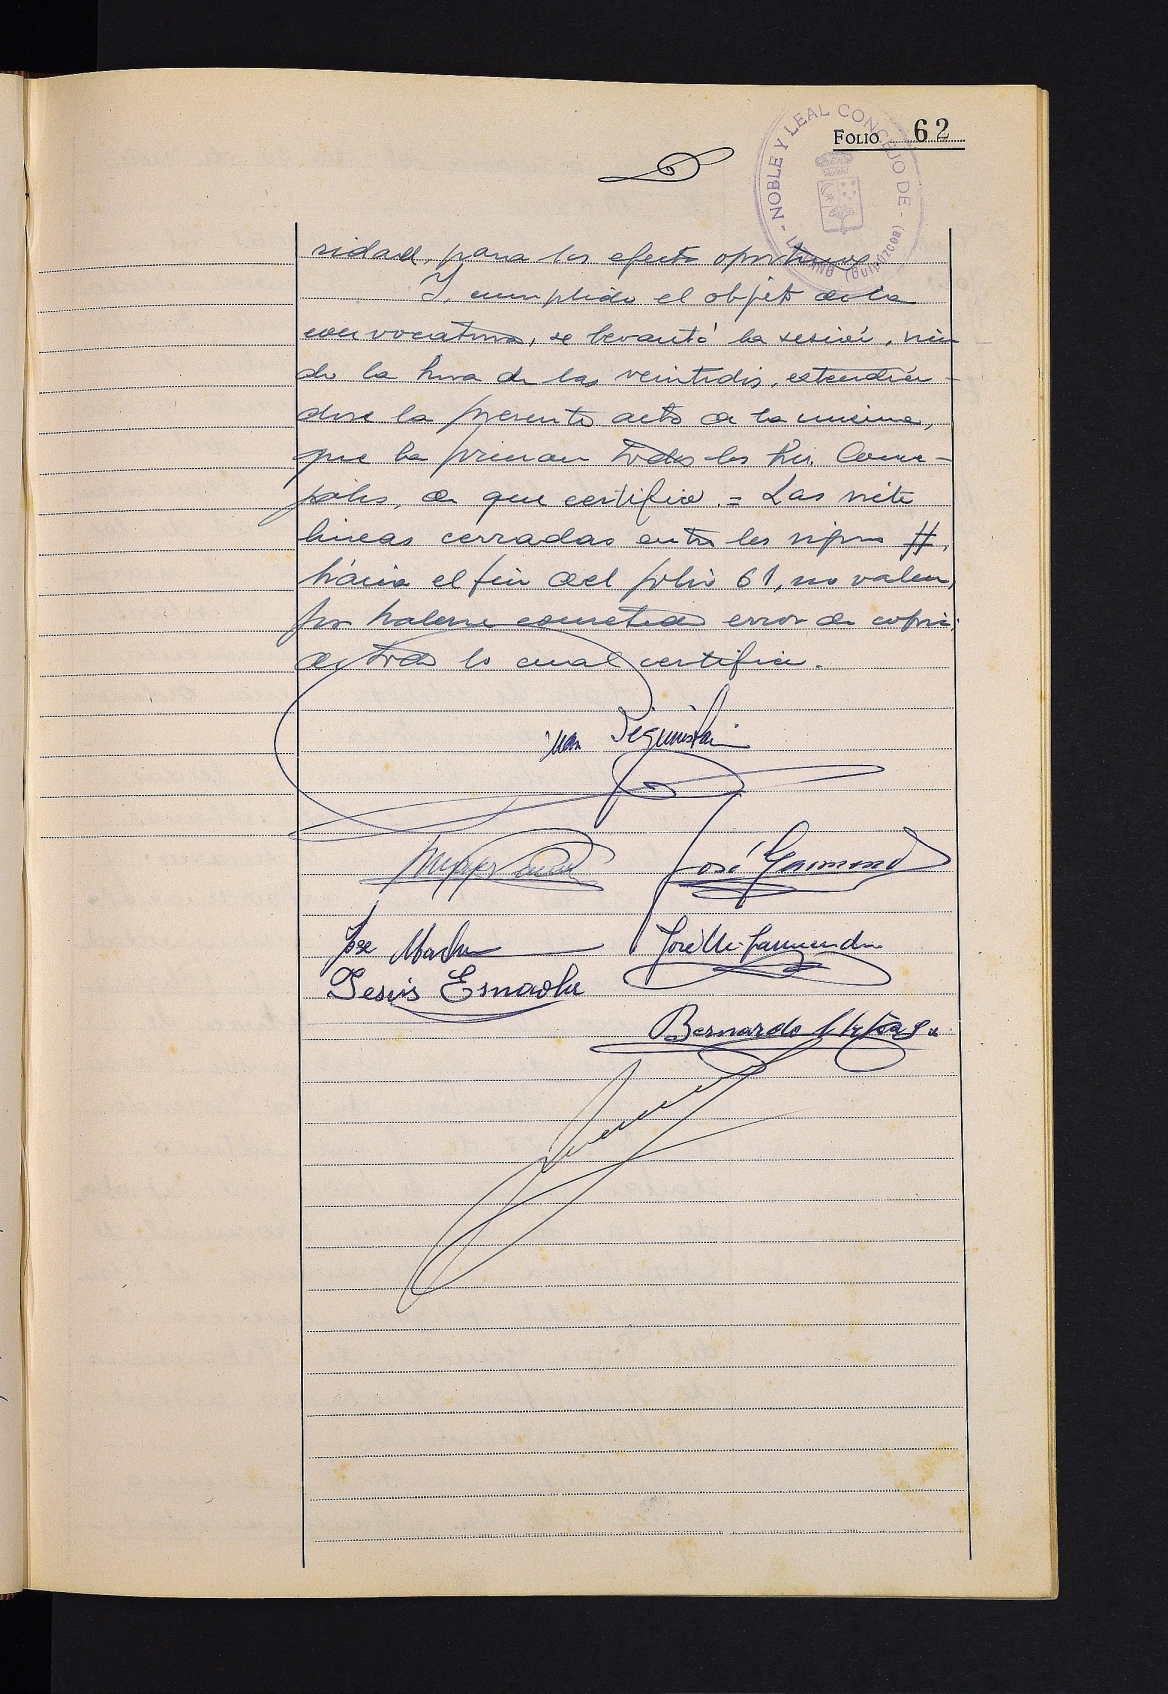 FOLIO 62
- NOBLE Y LEAL CONCEJO DE - LAZCANO (Guipúzcoa)
ridad, para los efectos oportunos.
Y, cumplido el objeto de la
convocatoria, se levantó la sesión, sien
do la hora de las veintidós, extendién-
dose la presente acta de la misma,
que la firman todos los Srs. Conce-
jales, de que certifico. = Las siete
líneas cerradas entre los signos #,
hácia el fin del folio 61, no valen,
por haberse cometido error de copia;
de todo lo cual certifico.
Juan Iz
José Garmend
José
José M. Garmendia
Jesús Esnaola
Bernardo